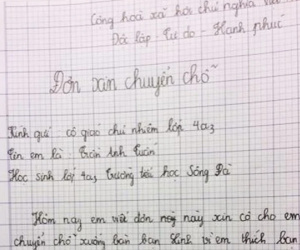 Cộng hoà xã hội chủ nghĩa việt
Độc lập - Tự do - Hạnh phúc
Đơn xin chuyển chỗ
Kính quí cô giáo chủ nhiệm lớp 4a3
Tên em là Trần Anh Tuấn
Học sinh lớp 4a3 trường tiểu học Sông Đà
Hôm nay em viết đơn này xin cô cho em
chuyển chỗ xuống bàn bạn Linh vì em thích bạn